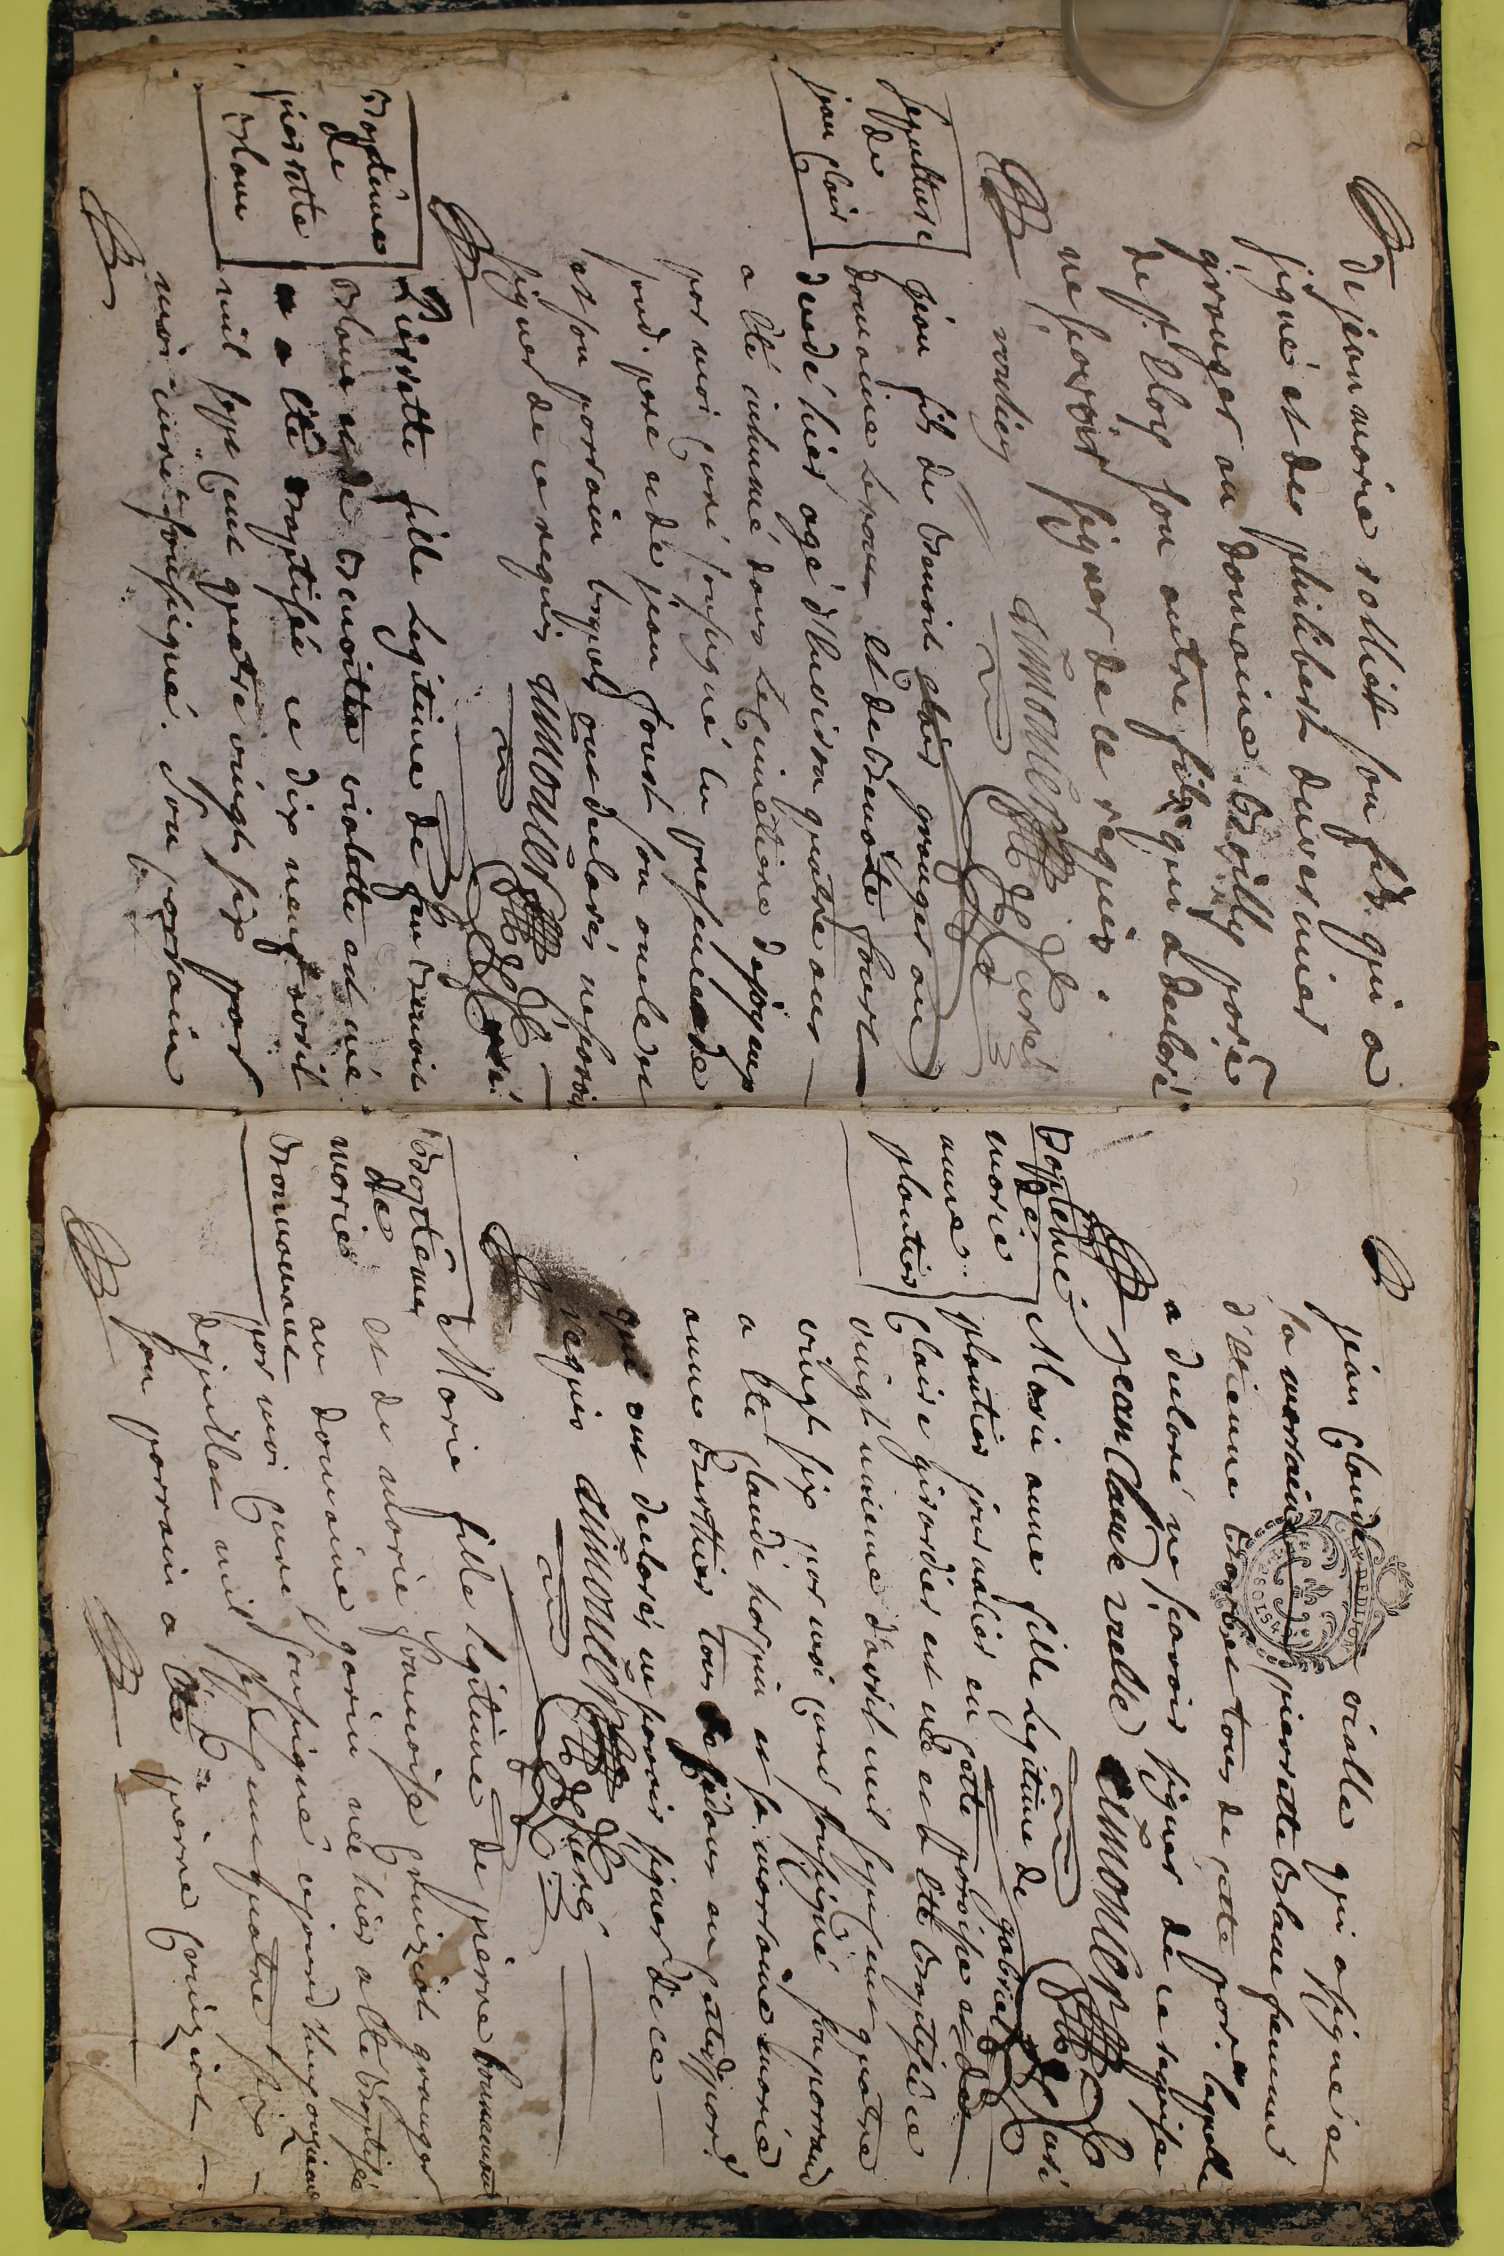 de jean marie rollet son fils qui a
signé et de philibert duvernier
granger au domaine Boilly par.e
de st. Eloy son autre fils qui a declaré
ne scavoir signer de ce requis.
Aumonier Curé
Sepulture
de
jean clair
jean fils de benoit clair granger au
domaine et de benoite
decedé hier agé d'environ quatre ans
a été inhumé dans le cimetiere de
par moi curé soussigné en presence de
sond. pere et de jean son oncle
et son parrain lesquels ont declarés ne scavoir
signer de ce requis Aumonier Curé
Baptême
de
pierrette
blanc
Pierrette fille legitime de feu benoit
blanc et de benoitte violette est née
et a été baptisée ce dix neuf avril
mil sept cent quatre vingt six par
moi curé soussigné. Son parrain
jean claude vialle qui a signé et
sa marraine pierrette blanc femme
d'etienne barbet tous de cette par.e laquelle
a declaré ne scavoir signer de ce requise
jean claude vialle Aumonier Curé
Baptême
de
marie
anne
plantier
Marie anne fille legitime de gabriel
plantier journalier en cette paroisse et de
Claire girardier est née et a été baptisée ce
vingt unieme d'avril mil sept cent quatre
vingt six par moi curé soussigné son parrain
a été claude et sa marraine marie
anne berthier tous residans en cette par.e
qui ont declarés ne scavoir signer de ce
requis Aumonier Curé
Baptême
de
marie
bonnamour
Marie fille legitime de pierre bonnamour
et de marie francoise granger
au domaine née hier a été baptisée
par moi curé soussigné cejourd'huy onzieme
de juillet mil sept cent quatre vingt six
son parrain a été pierre